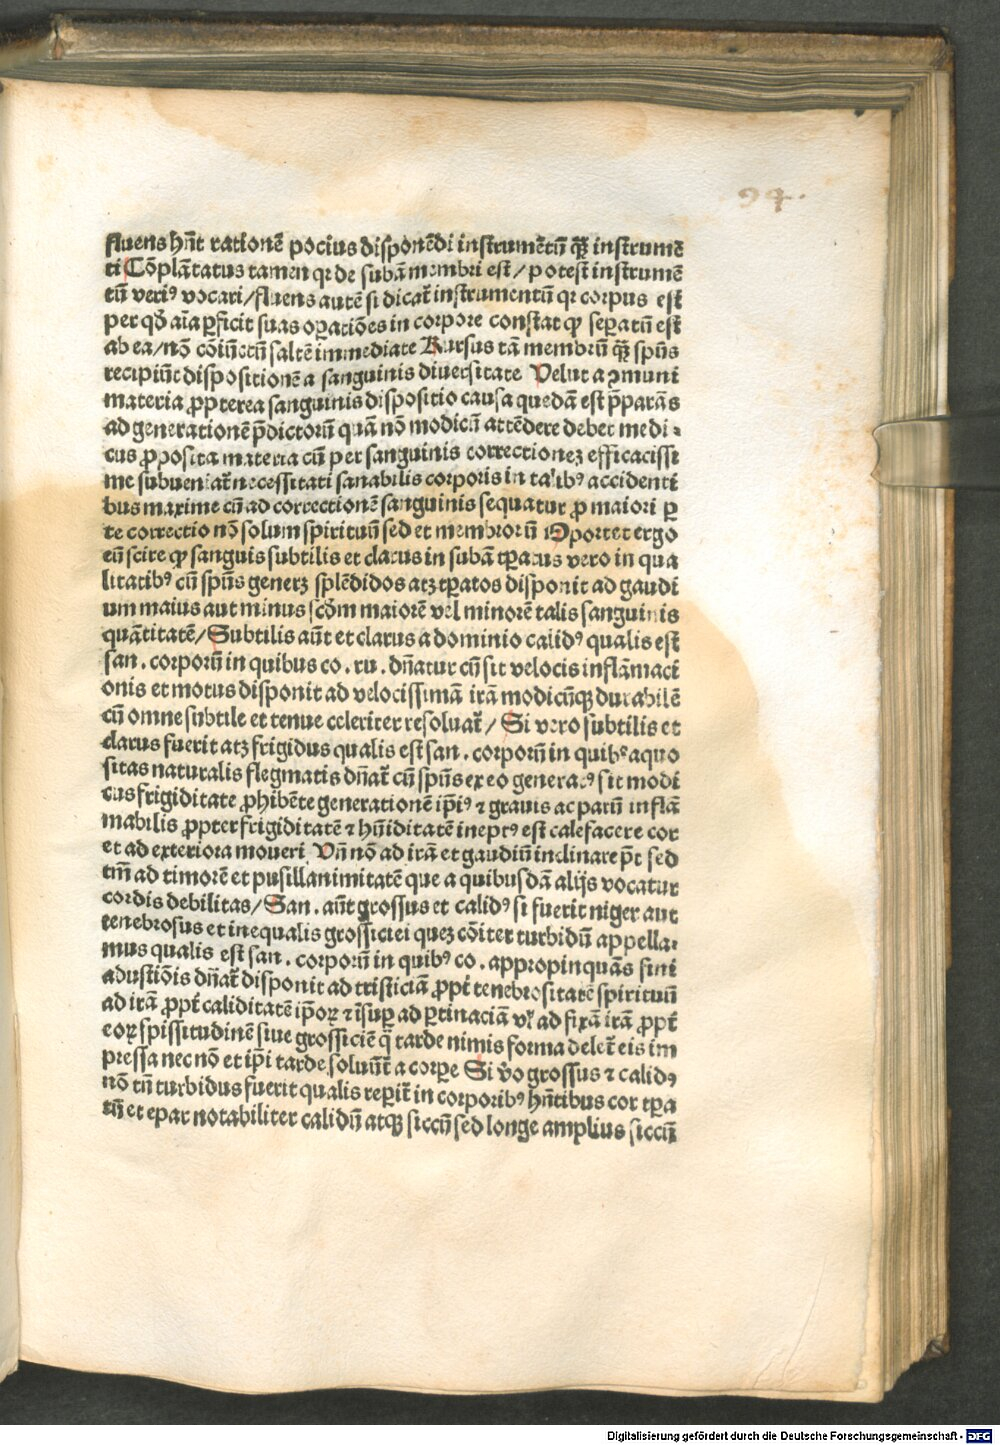 94.
fluens hn̄t rationē pocius disponēdi instrumētū q̄ꝫ instrumē
ti Cōplātatus tamen qꝛ de subā membri est / potest instrumē
tū veriꝰ vocari / fluens autē si dicat᷑ instrumentū qꝛ corpus est
per qd̄ aīa ꝑficit suas oꝑatiōes in corpore constat ꝙ seꝑatū est
ab ea / nō cōiūctū saltē immediate Rursus tā membrū q̄ꝫ spūs
recipiūt dispositionē a sanguinis diuersitate Velut a ꝯmuni
materia ꝓpterea sanguinis dispositio causa quedā est p̄parās
ad generationē p̄dictorū quā nō modicū attēdere debet medi⸗
cus ꝓposita materia cū per sanguinis correctionez efficacissi
me subueniat᷑ necessitati sanabilis corporis in talibꝰ accidenti
bus maxime cū ad correctionē sanguinis sequatur ꝓ maiori ꝑ
te correctio nō solum spirituū sed et membrorū Oportet ergo
eū scire ꝙ sanguis subtilis et clarus in subā tꝑatus vero in qua
litatibꝰ cū spūs generꝫ splēdidos atꝫ tꝑatos disponit ad gaudi
um maius aut minus scḋm maiorē vel minorē talis sanguinis
quātitatē / Subtilis aūt et clarus a dominio calidꝰ qualis est
san . corporū in quibus co . ru . dn̄atur cū sit velocis inflāmaci
onis et motus disponit ad velocissimā irā modicūqꝫ durabilē
cū omne subtile et tenue celeriter resoluat᷑ / Si vero subtilis et
clarus fuerit atꝫ frigidus qualis est san . corporū in quibꝰ aquo
sitas naturalis flegmatis dn̄at᷑ cū spūs ex eo generatꝰ sit modi
cus frigiditate ꝓhibēte generationē ip̄iꝰ ⁊ grauis ac parū inflā
mabilis ꝓpter frigiditatē ⁊ hūiditatē ineptꝰ est calefacere cor
et ad exteriora moueri Vn̄ nō ad irā et gaudiū inclinare pōt sed
tm̄ ad timorē et pusillanimitatē que a quibusdā alijs vocatur
cordis debilitas / San . aūt grossus et calidꝰ si fuerit niger aut
tenebrosus et inequalis grossiciei quez cōiter turbidū appella⸗
mus qualis est san . corporū in quibꝰ co . appropinquās fini
adustiōis dn̄at᷑ disponit ad tristiciā ꝓpt̄ tenebrositatē spirituū
ad irā ꝓpt̄ caliditatē ip̄oꝝ ⁊ īsuꝑ ad ꝑtinaciā vl̓ ad fixā irā ꝓpt̄
eoꝝ spissitudinē siue grossiciē q̄ tarde nimis forma delet᷑ eis im
pressa nec nō et ip̄i tarde soluūt᷑ a corpe Si v̓o grossus ⁊ calidꝰ
nō tn̄ turbidus fuerit qualis reperit᷑ in corporibꝰ hn̄tibus cor tꝑa
tū et epar notabiliter calidū atqꝫ siccū sed longe amplius siccū
Digitalisierung gefördert durch die Deutsche Forschungsgemeinschaft - DFG